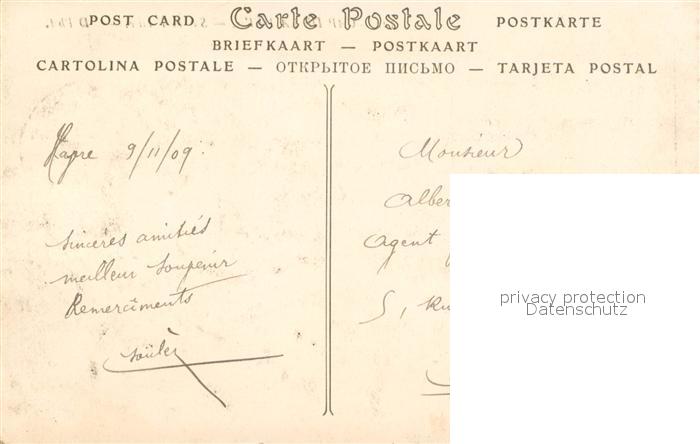 POST CARD Carte Postale POSTKARTE
BRIEFKAART — POSTKAART
CARTOLINA POSTALE — ОТКРЫТОЕ ПИСЬМО — TARJETA POSTAL
Havre 9/11/09.
Sincères amitiés
meilleur souvenir
Remerciments
Monsieur
Alber
Agent
5, Ru
privacy protection
Datenschutz